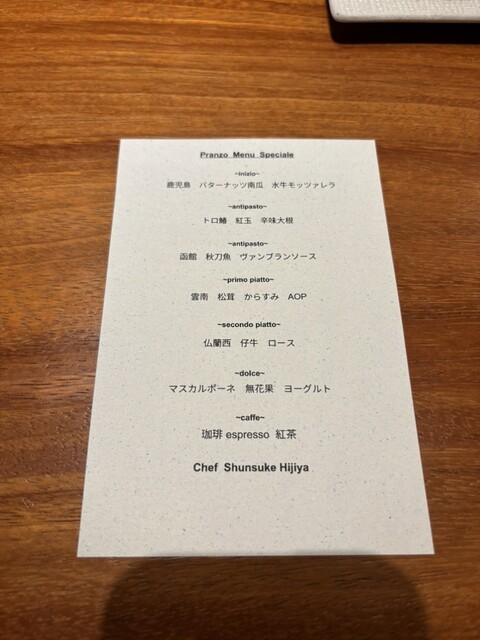 Pranzo Menu Speciale
~inizio~
鹿児島 バターナッツ南瓜 水牛モッツァレラ
~antipasto~
トロ鰆 紅玉 辛味大根
~antipasto~
函館 秋刀魚 ヴァンブランソース
~primo piatto~
雲南 松茸 からすみ AOP
~secondo piatto~
仏蘭西 仔牛 ロース
~dolce~
マスカルポーネ 無花果 ヨーグルト
~caffe~
珈琲 espresso 紅茶
Chef Shunsuke Hijiya